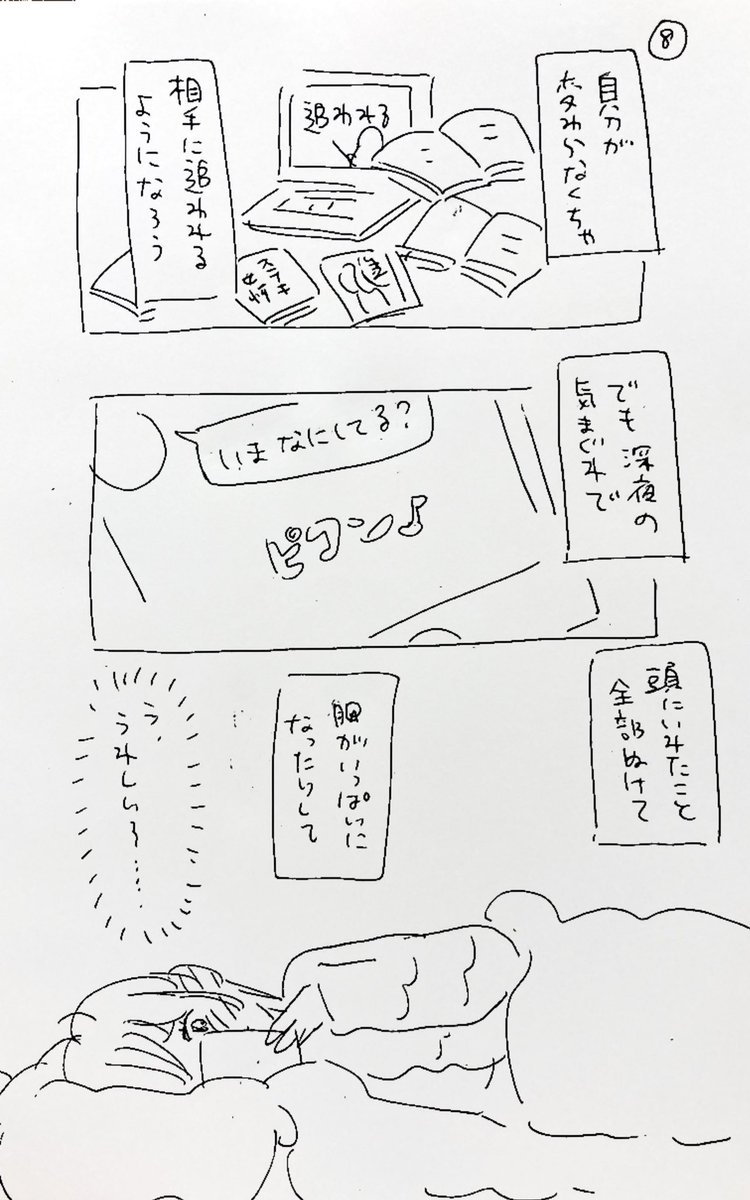 8
自分が
変わらなくちゃ
追われる
ステキ
女情
相手に追われる
ようになろう
でも深夜の
気まぐれで
いまなにしてる?
ピコン♪
頭にいれたこと
全部ぬけて
胸がいっぱいに
なったりして
う、
うれしい〜……